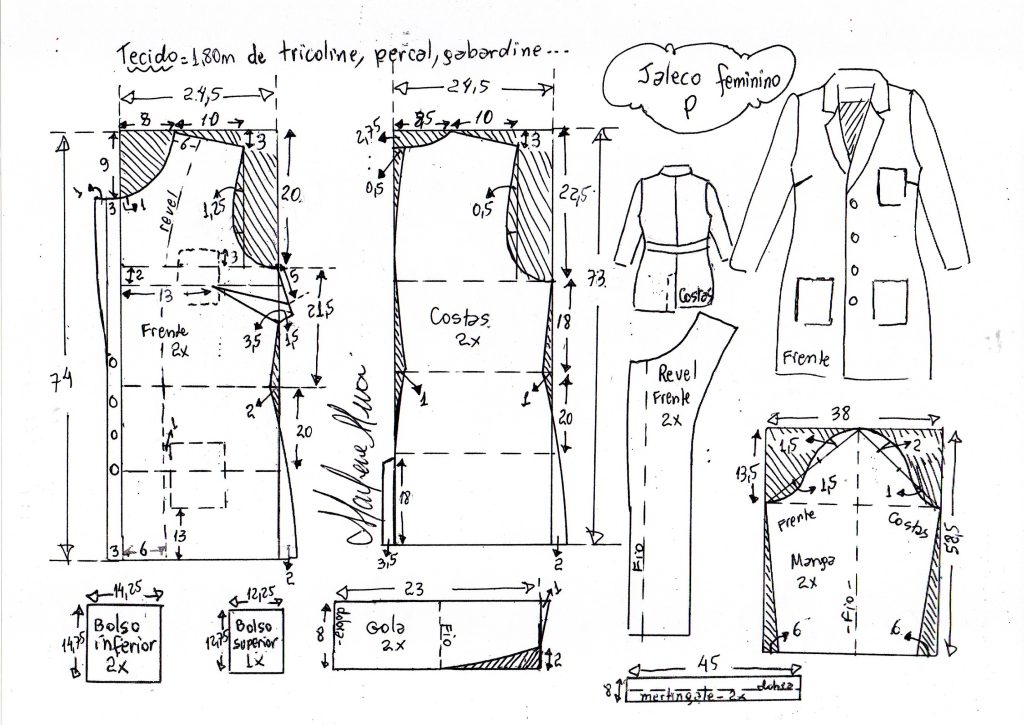 Tecido = 1,80m de tricoline, percal, gabardine...
Jaleco feminino
P
24,5
8
10
9
6
3
3
1
revel
1,25
20
3
2
13
5
3,5
1,5
21,5
Frente
2x
74
2
20
1
13
3
6
2
24,5
2,75
8,5
10
3
0,5
0,5
22,5
73
Costas
2x
18
1
1
20
18
3,5
2
Marlene Mukai
Costas
Frente
Revel
Frente
2x
Fio
38
1,5
2
13,5
1,5
1
Frente
Costas
Manga
2x
Fio
58,5
6
6
14,25
14,75
Bolso
inferior
2x
12,25
12,75
Bolso
superior
1x
23
8
dobra
Gola
2x
Fio
1
2
45
8
martingale - 2x
dobra